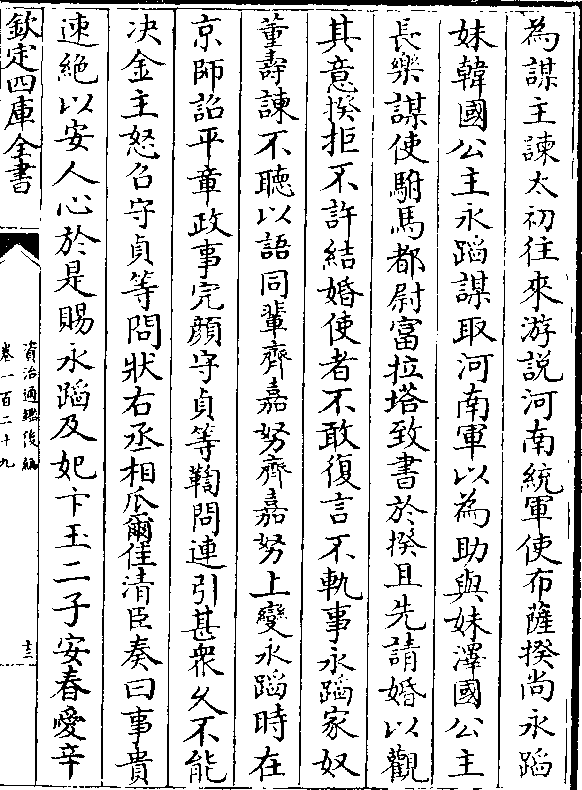 為謀主諫太初往來游説河南統軍使布薩揆尚永蹈
妹韓國公主永蹈謀取河南軍以為助與妹澤國公主
長樂謀使駙馬都尉富拉塔致書於揆且先請婚以觀
其意揆拒不許結婚使者不敢復言不軌事永蹈家奴
董壽諫不聽以語同輩齊嘉努齊嘉努上變永蹈時在
京師詔平章政事完顔守貞等鞫問連引甚衆久不能
决金主怒召守貞等問狀右丞相瓜爾佳清臣奏曰事貴
速絶以安人心於是賜永蹈及妃卞玉二子安春愛辛
欽定四庫全書
資治通鑑後編
卷一百二十九
十三